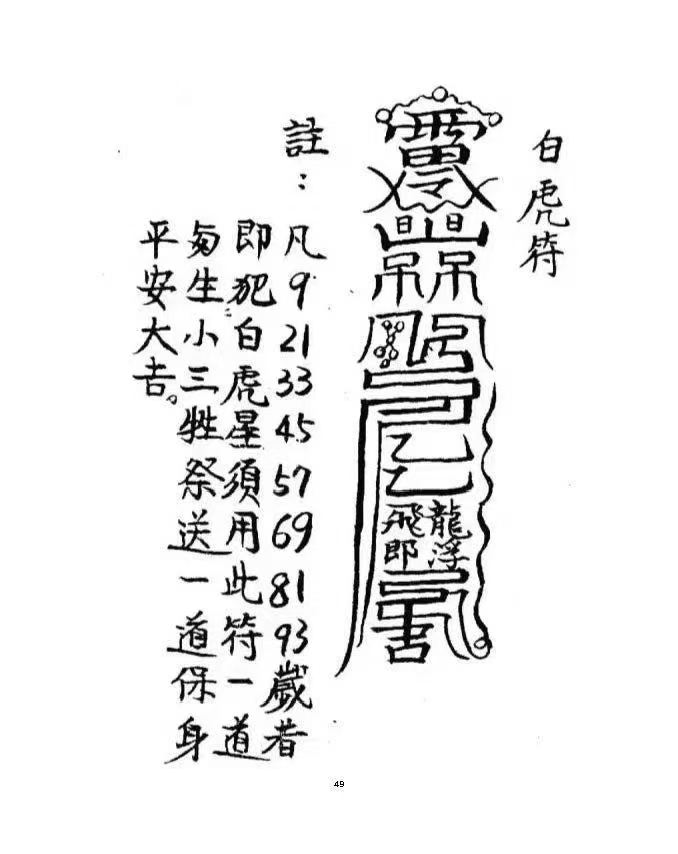 白虎符
日 日
龍浮
飛郎
註：
凡9 21 33 45 57 69 81 93歲者
即犯白虎星須用此符一道
生小三牲祭送一道保身
平安大吉。
49